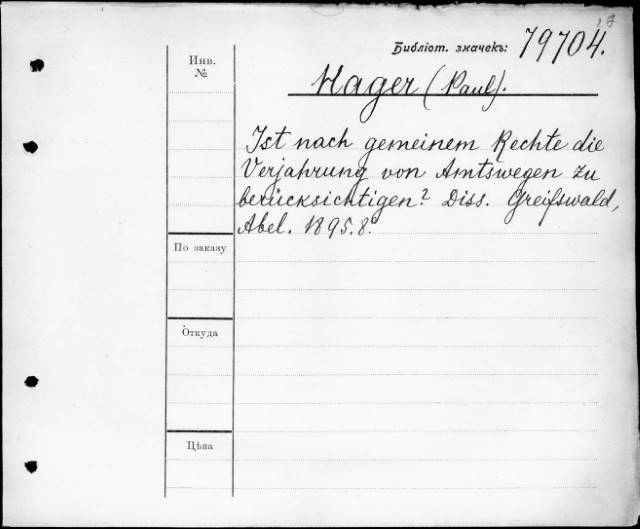 Библіот. значекъ: 79704.
Инв.
№
Hager (Paul).
Ist nach gemeinem Rechte die
Verjahrung von Amtswegen zu
berücksichtigen? Diss. Greifswald,
Abel. 1895. 8.
По заказу
Откуда
Цѣна